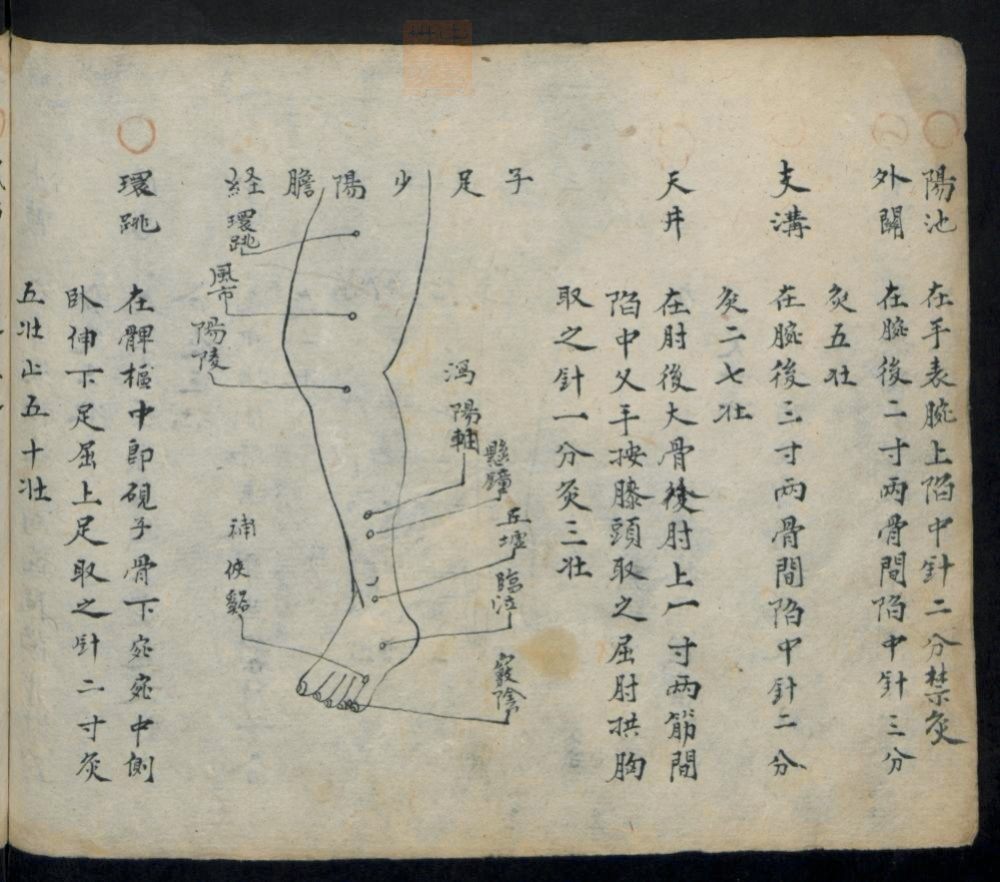 陽池 在手表腕上陷中針二分禁灸
外關 在腕後二寸兩骨間陷中針三分
灸五壯
支溝 在腕後三寸兩骨間陷中針二分
灸二七壯
天井 在肘後大骨後肘上一寸兩筋間
陷中乂手按膝頭取之屈肘拱胸
取之針一分灸三壯
子 足少陽膽経
瀉 陽輔
懸鐘
丘墟
臨泣
竅陰
環跳
風市
陽陵
補 俠谿
環跳 在髀樞中即硯子骨下宛宛中側
卧伸下足屈上足取之針二寸灸
五壯止五十壯